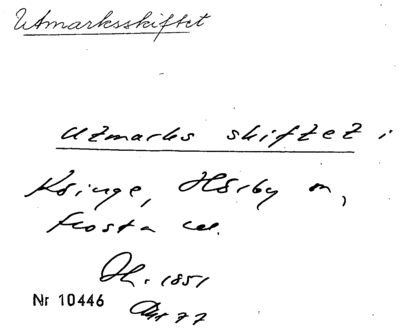 Utmarksskiftet
Utmarks skiftet i
Köinge, Hörby sn,
Frosta
Dh. 1851
Nr 10446
77